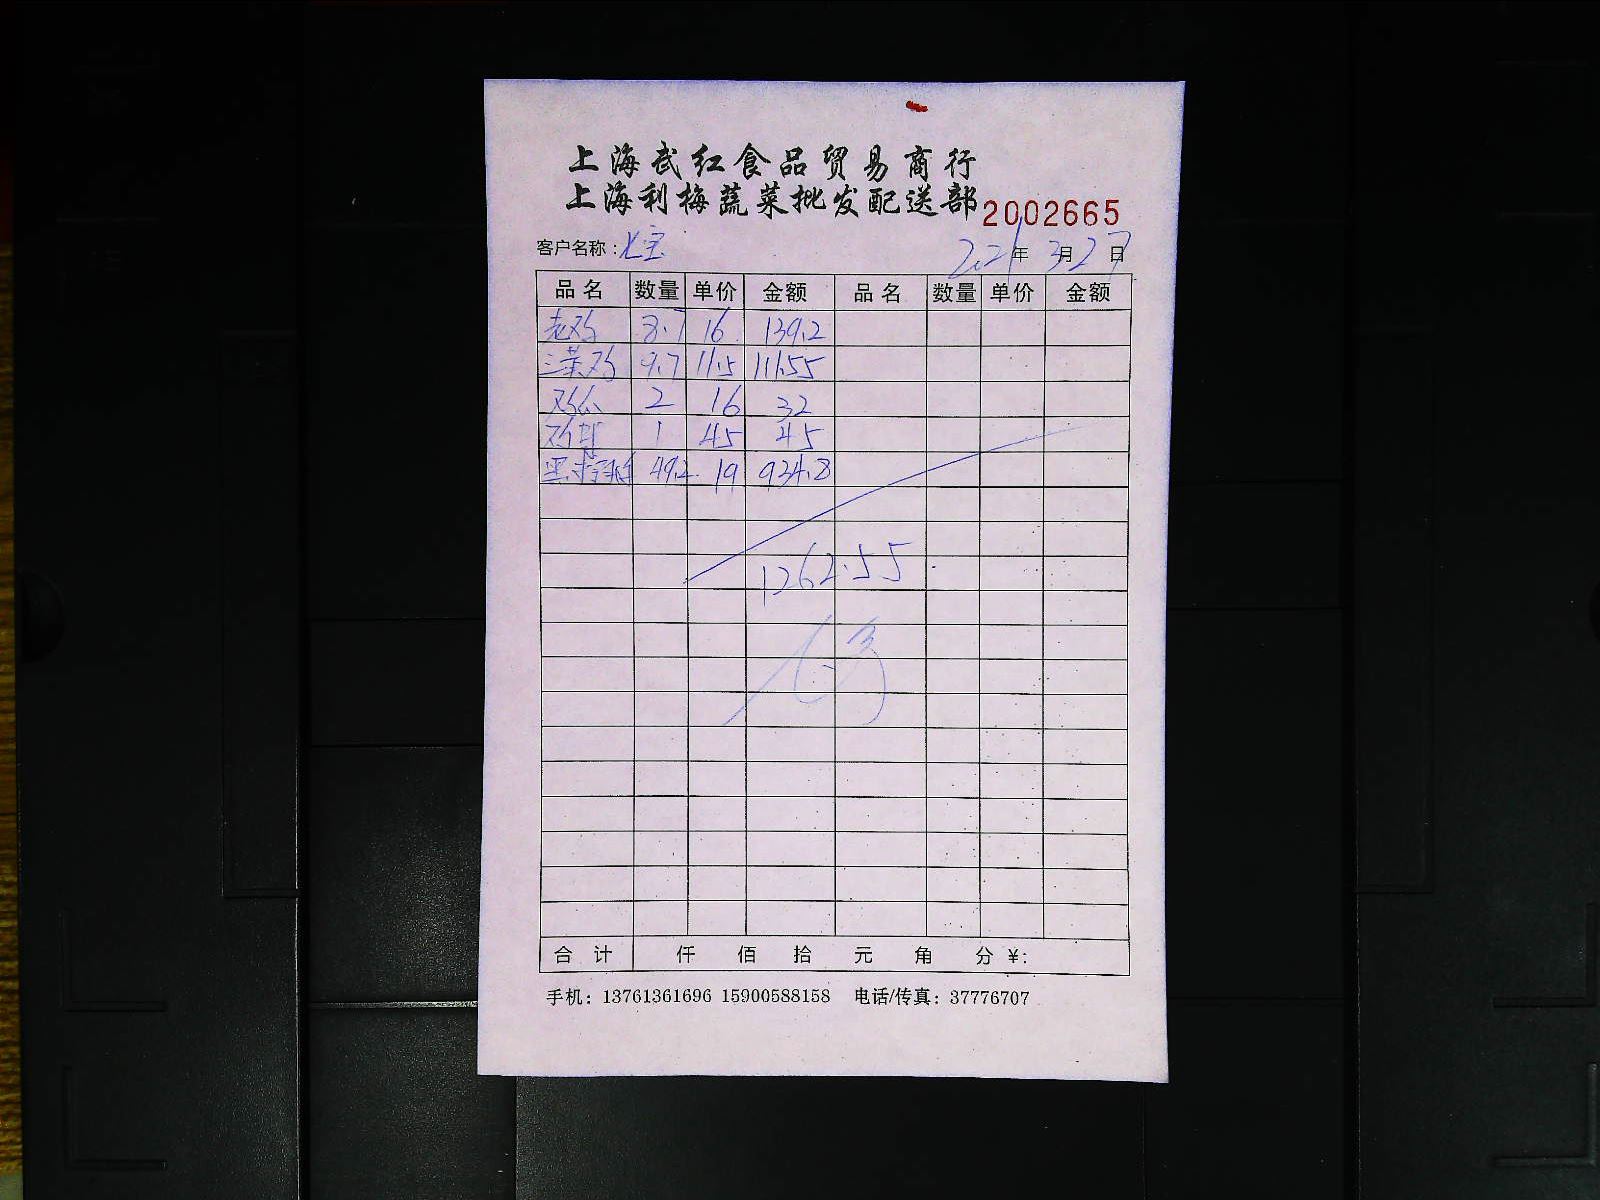 上海武红食品贸易商行
上海利梅蔬菜批发配送部 2002665
客户名称：七宝 2021年 3月27日
品名 数量 单价 金额 品名 数量 单价 金额
老鸡 8.7 16 139.2
三黄鸡 9.7 11.5 111.55
鸡爪 2 16 32
1 45 45
49.2 19 934.8
1262.55
合计 仟 佰 拾 元 角 分 ¥:
手机：13761361696 15900588158 电话/传真：37776707